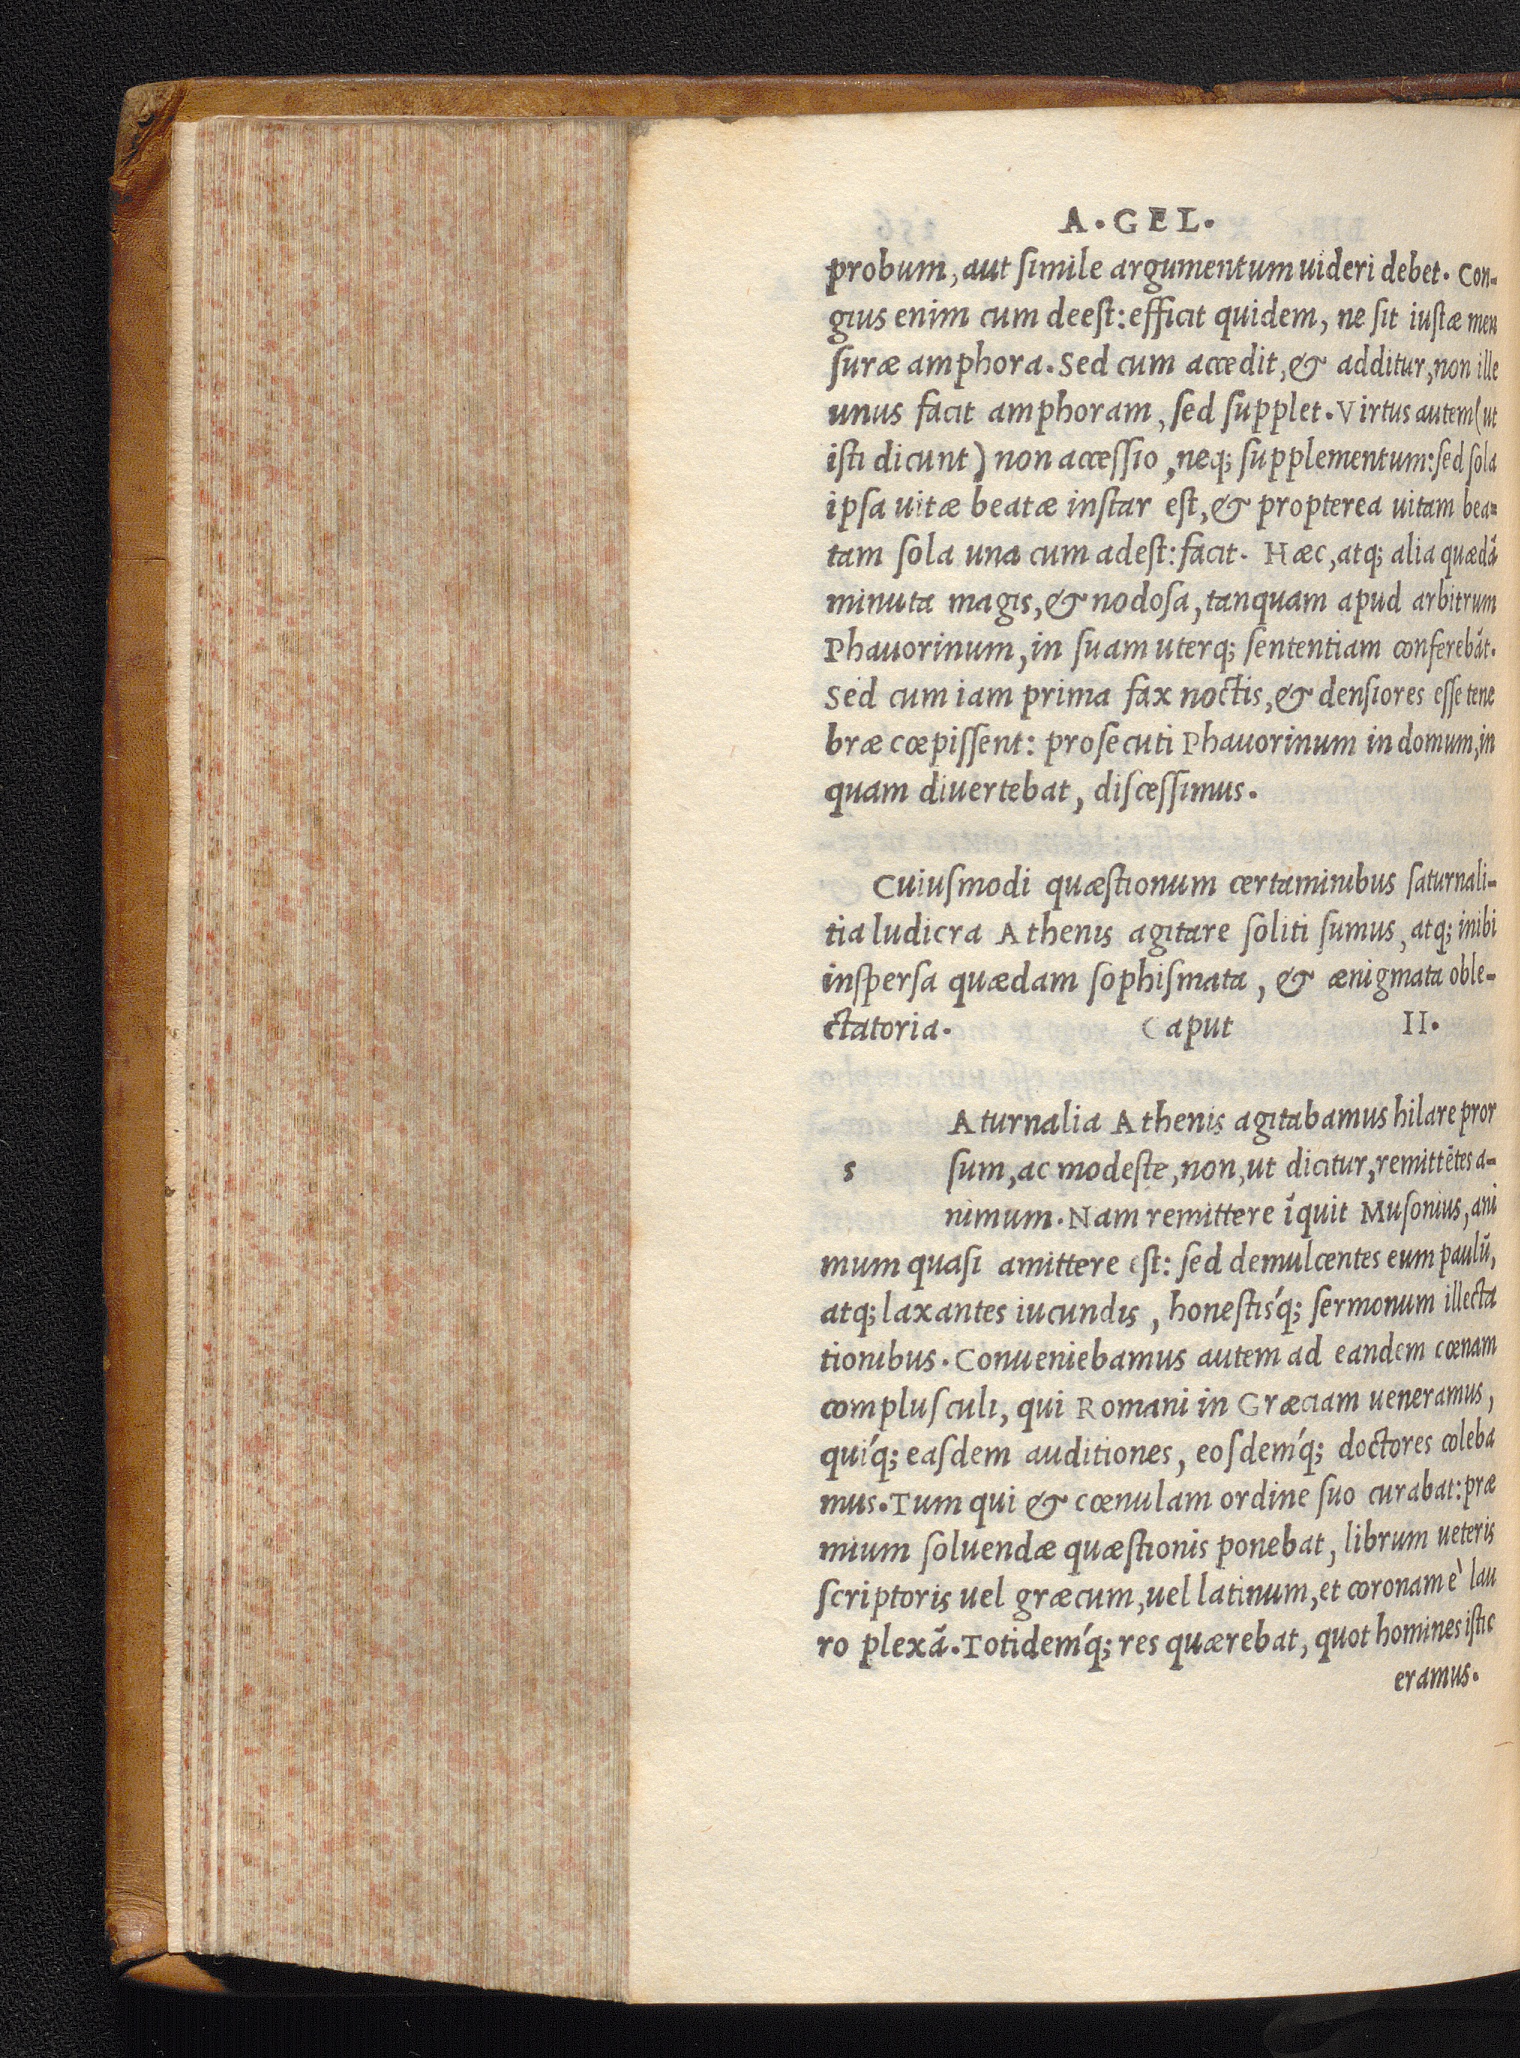 A. GEL.
probum, aut simile argumentum uideri debet. Con-
gius enim cum deest: efficit quidem, ne sit iustæ men
suræ amphora. Sed cum accedit, & additur, non ille
unus facit amphoram, sed supplet. Virtus autem (ut
isti dicunt) non accessio, neq; supplementum: sed sola
ipsa uitæ beatæ instar est, & propterea uitam bea-
tam sola una cum adest: facit. Hæc, atq; alia quædā
minuta magis, & nodosa, tanquam apud arbitrum
Phauorinum, in suam uterq; sententiam conferebāt.
Sed cum iam prima fax noctis, & densiores esse tene
bræ cœpissent: prosecuti Phauorinum in domum, in
quam diuertebat, discessimus.
Cuiusmodi quæstionum certaminibus saturnali-
tia ludicra Athenis agitare soliti sumus, atq; inibi
inspersa quædam sophismata, & ænigmata oble-
ctatoria. Caput II.
Aturnalia Athenis agitabamus hilare pror
s sum, ac modeste, non, ut dicitur, remittētes a-
nimum. Nam remittere īquit Musonius, ani
mum quasi amittere est: sed demulcentes eum paulū,
atq; laxantes iucundis, honestisq́; sermonum illecta
tionibus. Conueniebamus autem ad eandem cœnam
complusculi, qui Romani in Græciam ueneramus,
quiq́; easdem auditiones, eosdemq́; doctores coleba
mus. Tum qui & cœnulam ordine suo curabat: præ
mium soluendæ quæstionis ponebat, librum ueteris
scriptoris uel græcum, uel latinum, et coronam è lau
ro plexā. Totidemq́; res quærebat, quot homines istic
eramus.